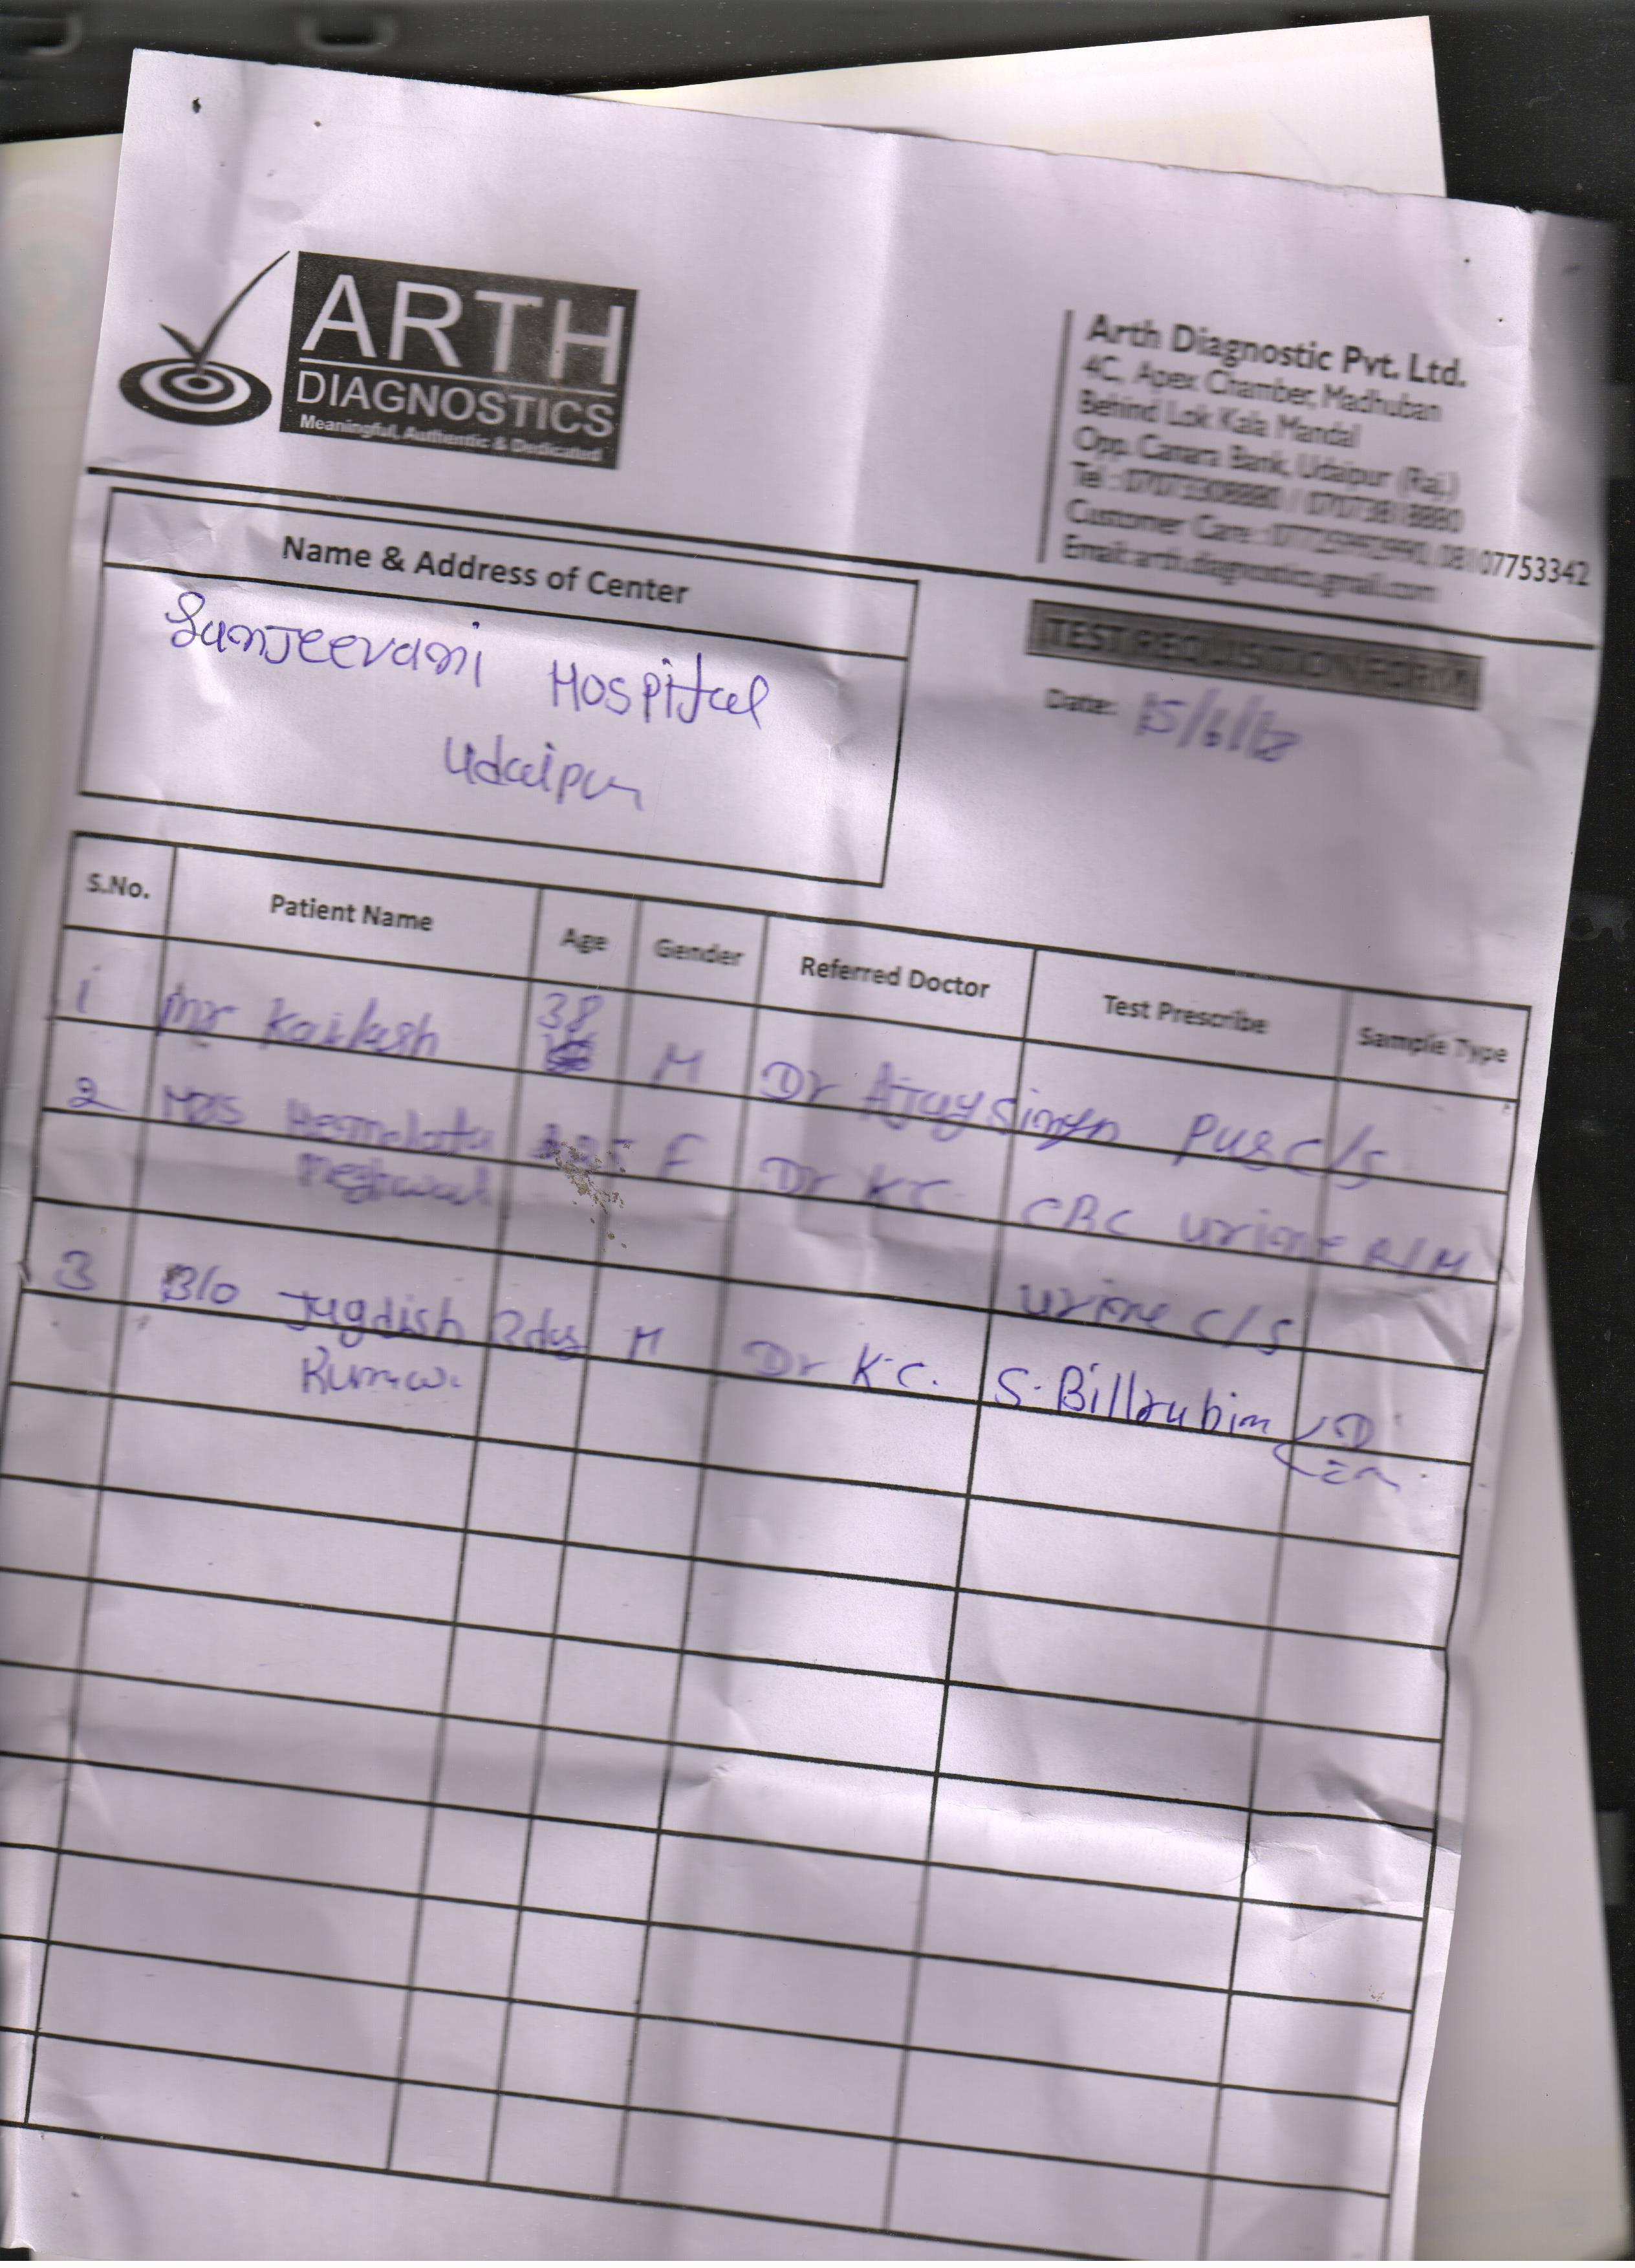 ARTH
DIAGNOSTICS
Meaningful, Authentic & Dedicated
Arth Diagnostic Pvt. Ltd.
4C, Apex Chamber, Madhuban
Behind Lok Kala Mandal
Opp. Canara Bank, Udaipur (Raj.)
Tel : 07073308880 / 07073818880
Customer Care : 08107753342
Email: arth.diagnostics@gmail.com
Name & Address of Center
TEST REQUISITION FORM
Sunjeevani Hospital
Udaipur
Date: 15/6/18
S.No. Patient Name Age Gender Referred Doctor Test Prescribe Sample Type
1 Mr Kailash 38 M Dr Ajay Singh Pus C/S
2 Mrs Hemelata F Dr KC CBC Urine R/M
Meghwal Urine C/S
3 B/o Jugdish 2dys M Dr K.C. S. Billrubin D
Kumar In